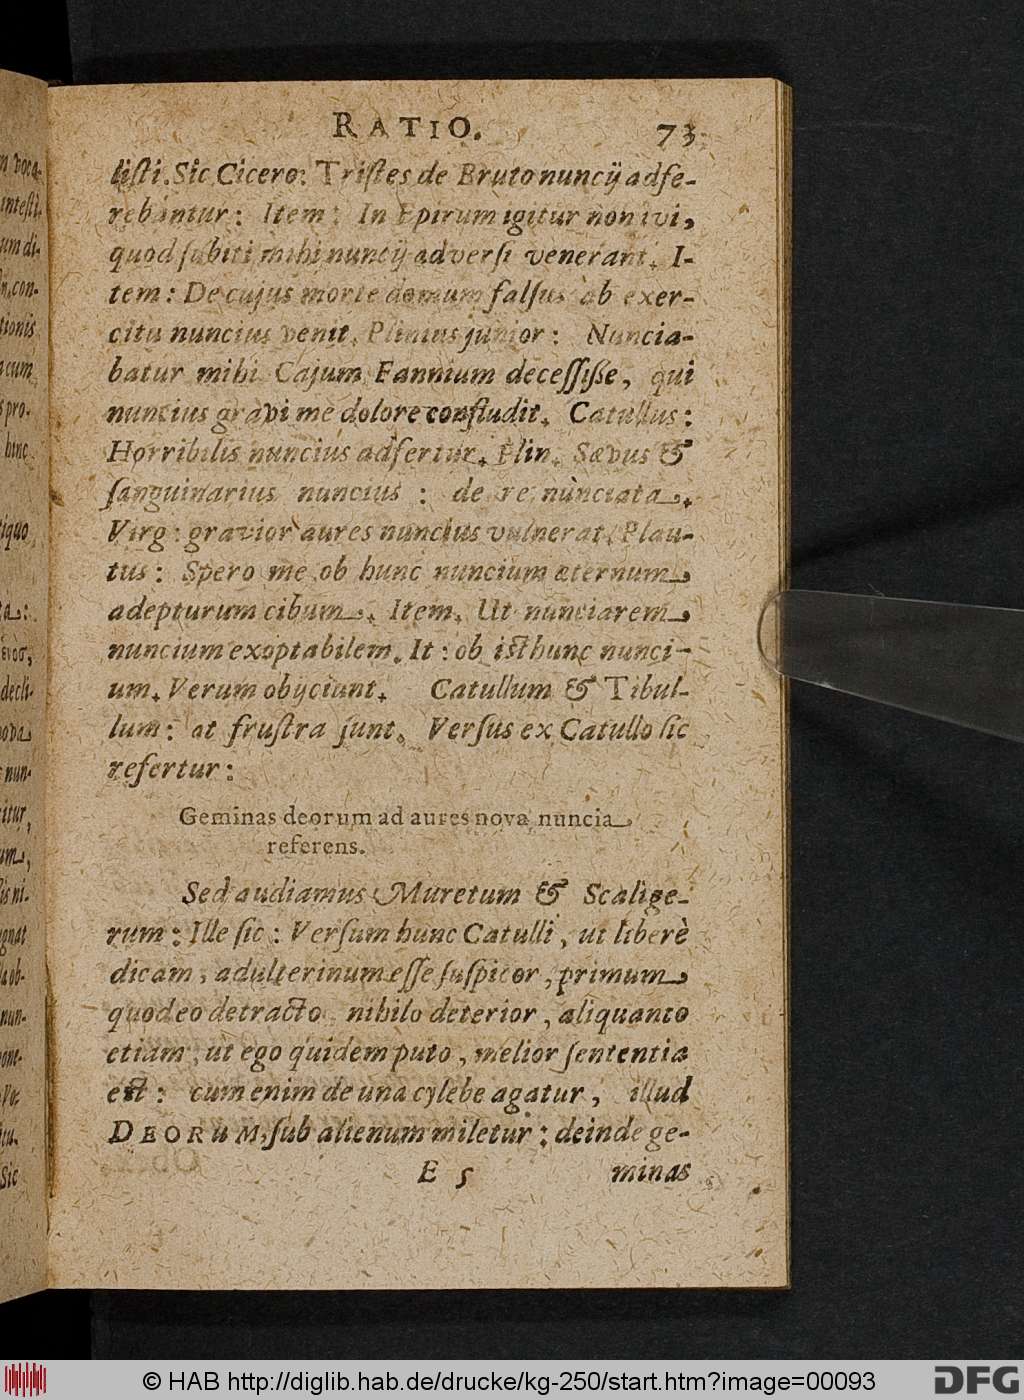 RATIO. 73
listi. Sic Cicero: Tristes de Bruto nuncij adfe-
rebantur: Item: In Epirum igitur non ivi,
quod subiti mihi nuncij adversi venerant. I-
tem: De cujus morte domum falsus ab exer-
citu nuncius venit. Plinius junior: Nuncia-
batur mihi Cajum Fannium decessisse, qui
nuncius gravi me dolore confludit. Catullus:
Horribilis nuncius adfertur. Plin. Sævus &
sanguinarius nuncius: de re nùnciata.
Virg: gravior aures nuncius vulnerat. Plau-
tus: Spero me ob hunc nuncium æternum
adepturum cibum. Item. Ut nunciarem
nuncium exoptabilem. It: ob isthunc nunci-
um. Verum obijciunt. Catullum & Tibul-
lum: at frustra sunt. Versus ex Catullo sic
refertur:
Geminas deorum ad aures nova nuncia
referens.
Sed audiamus Muretum & Scalige-
rum: Ille sic: Versum hunc Catulli, ut liberè
dicam, adulterinum esse suspicor, primum
quod eo detracto nihilo deterior, aliquanto
etiam, ut ego quidem puto, melior sententia
est: cum enim de una cylebe agatur, illud
DEORUM, sub alienum miletur: deinde ge-
E 5 minas
© HAB http://diglib.hab.de/drucke/kg-250/start.htm?image=00093
DFG